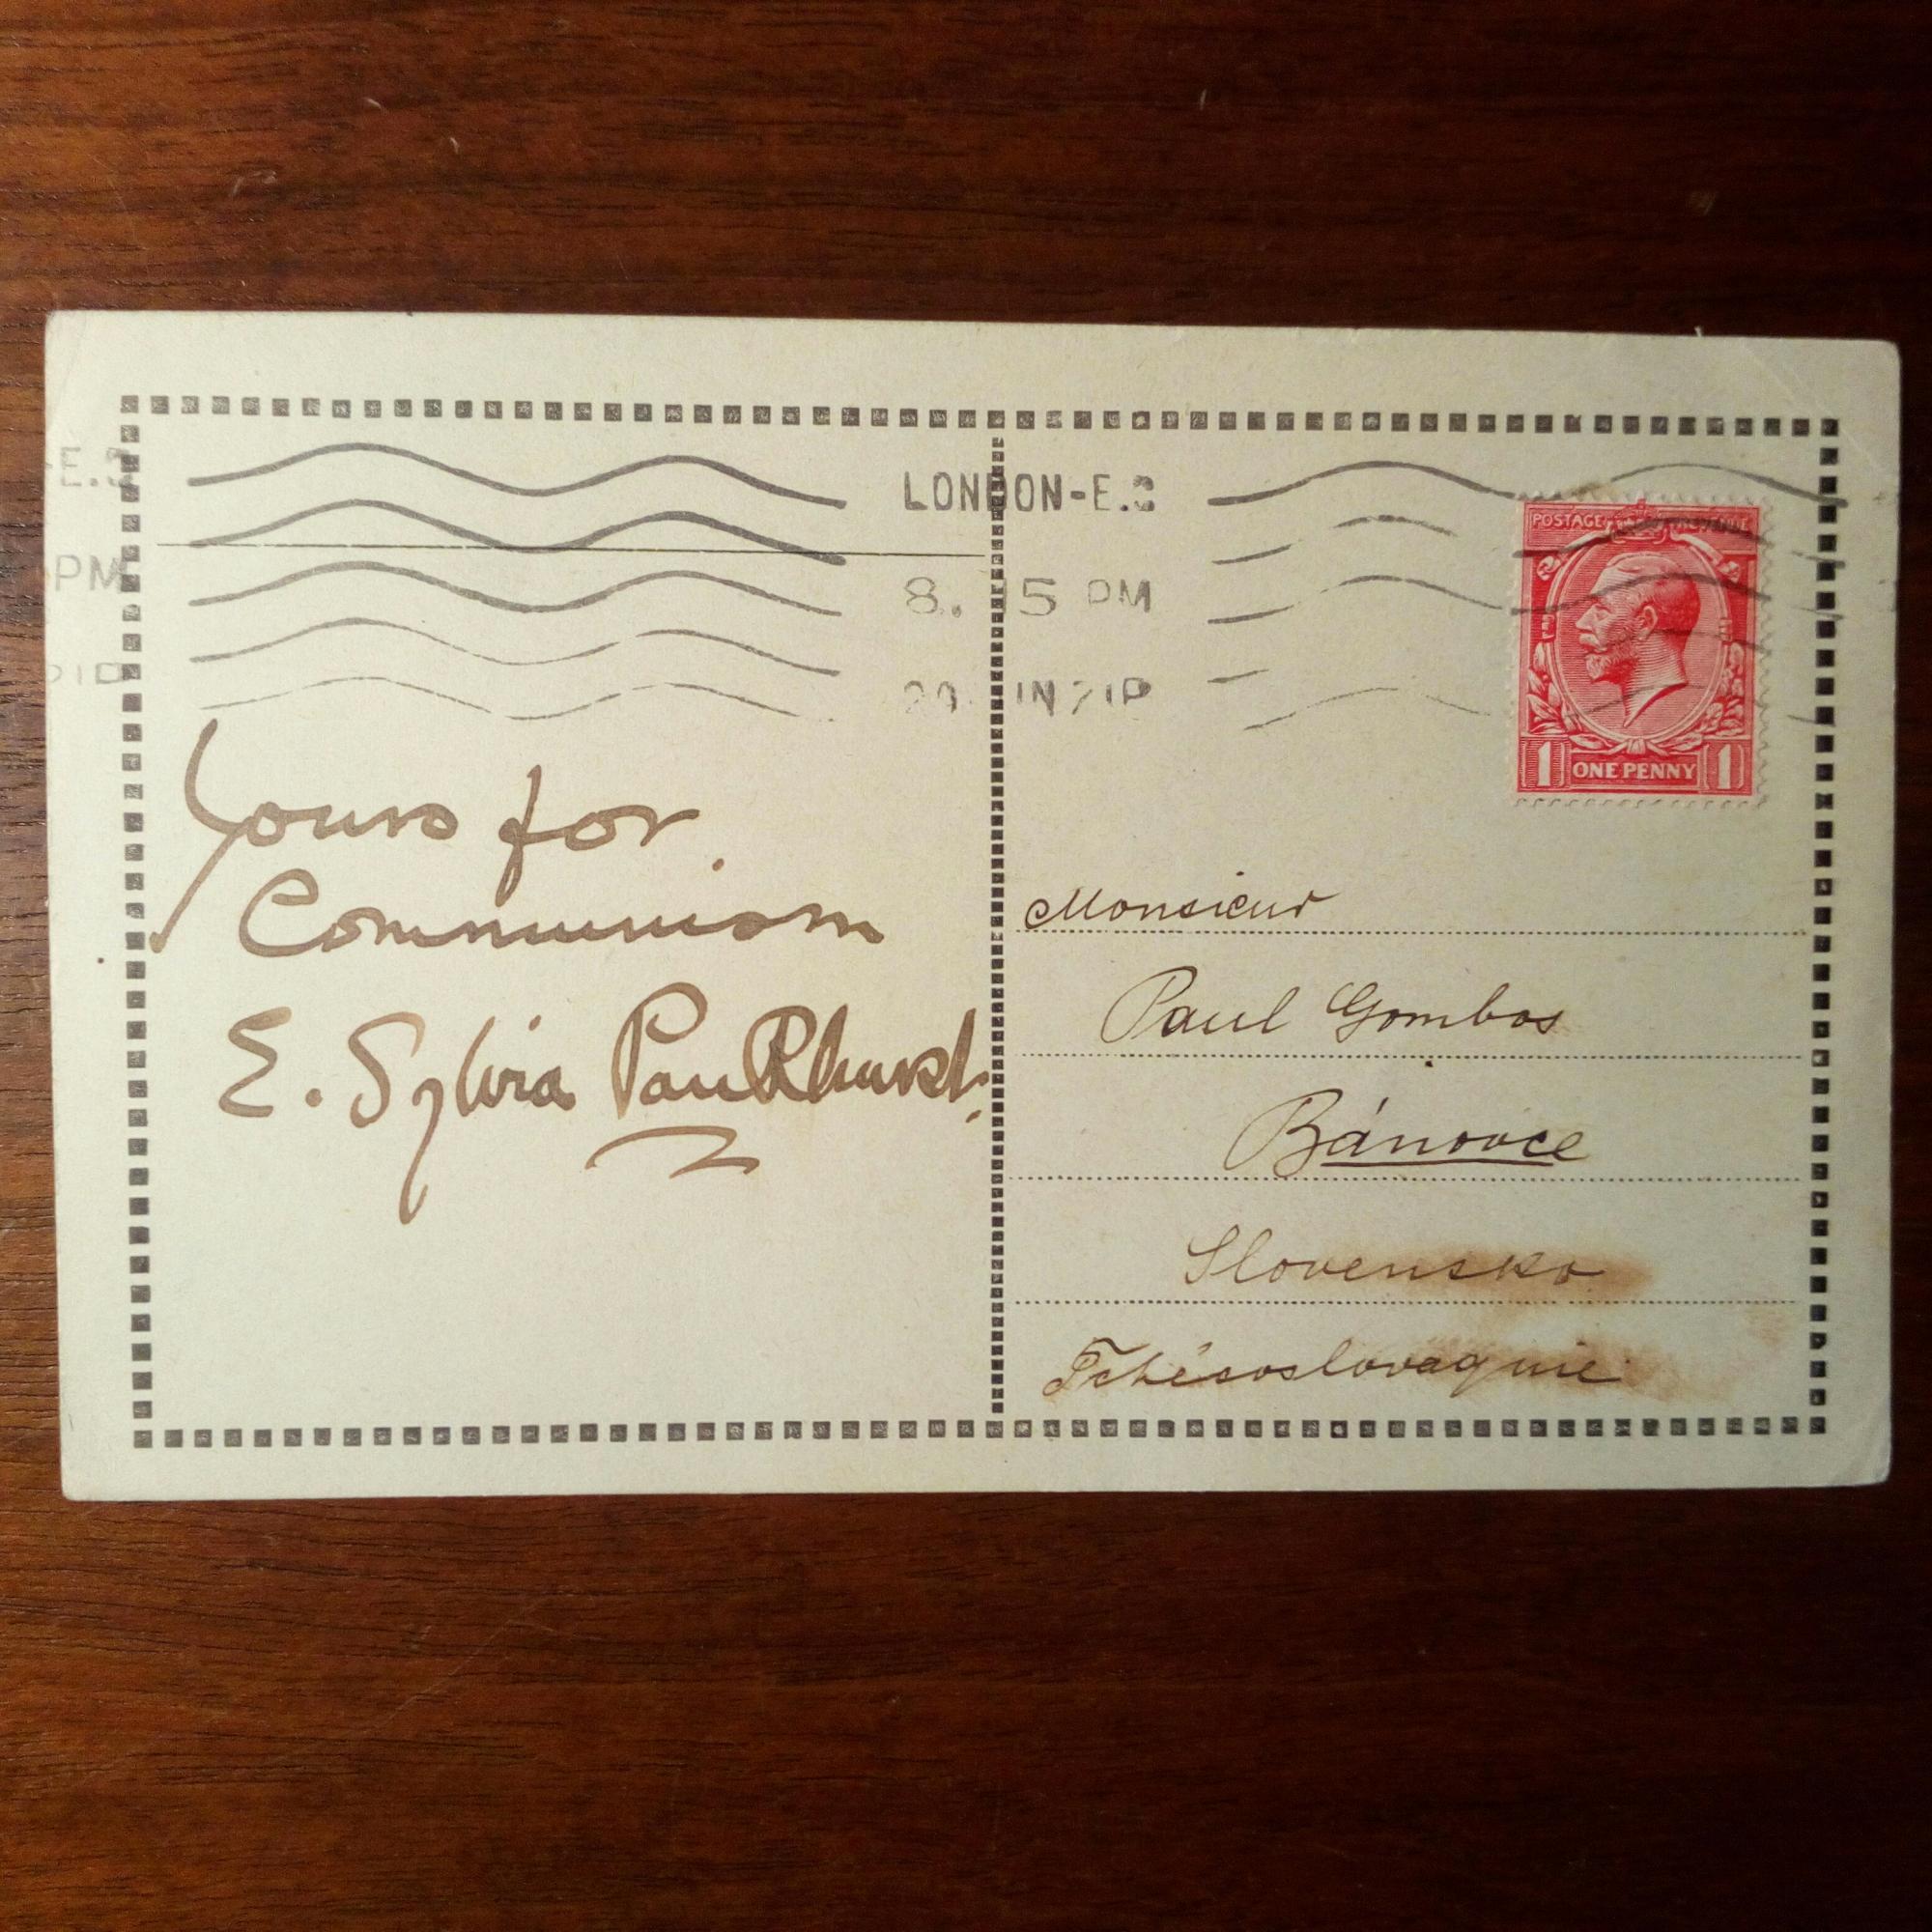 LONDON-E.3
8. 15 PM
POSTAGE REVENUE
1 ONE PENNY 1
E.3
PM
Yours for
Communism
E. Sylvia Pankhurst.
Monsieur
Paul Gombos
Bánovce
Slovensko
Tchécoslovaquie